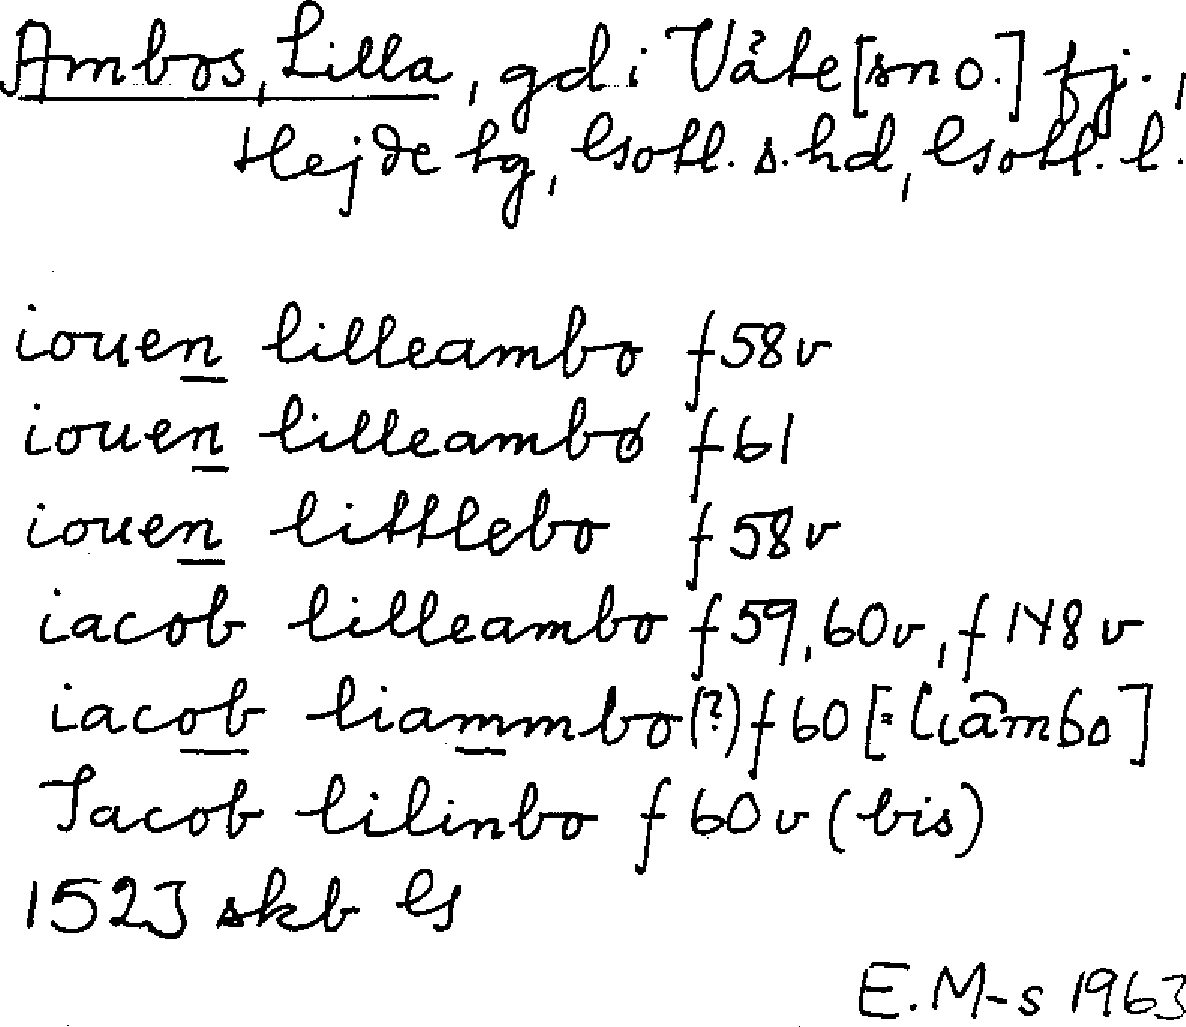 Ambos, Lilla, gd i Väte [sn o.] fj.,
Hejde tg, Gotl. s. hd, Gotl. l.
iouen lilleambo f 58 v
iouen lilleambo f 61
iouen littlebo f 58 v
iacob lilleambo f 59, 60 v, f 148 v
iacob liammbo (?) f 60 [= liãmbo]
Jacob lilinbo f 60 v (bis)
1523 skb G
E. M-s 1963